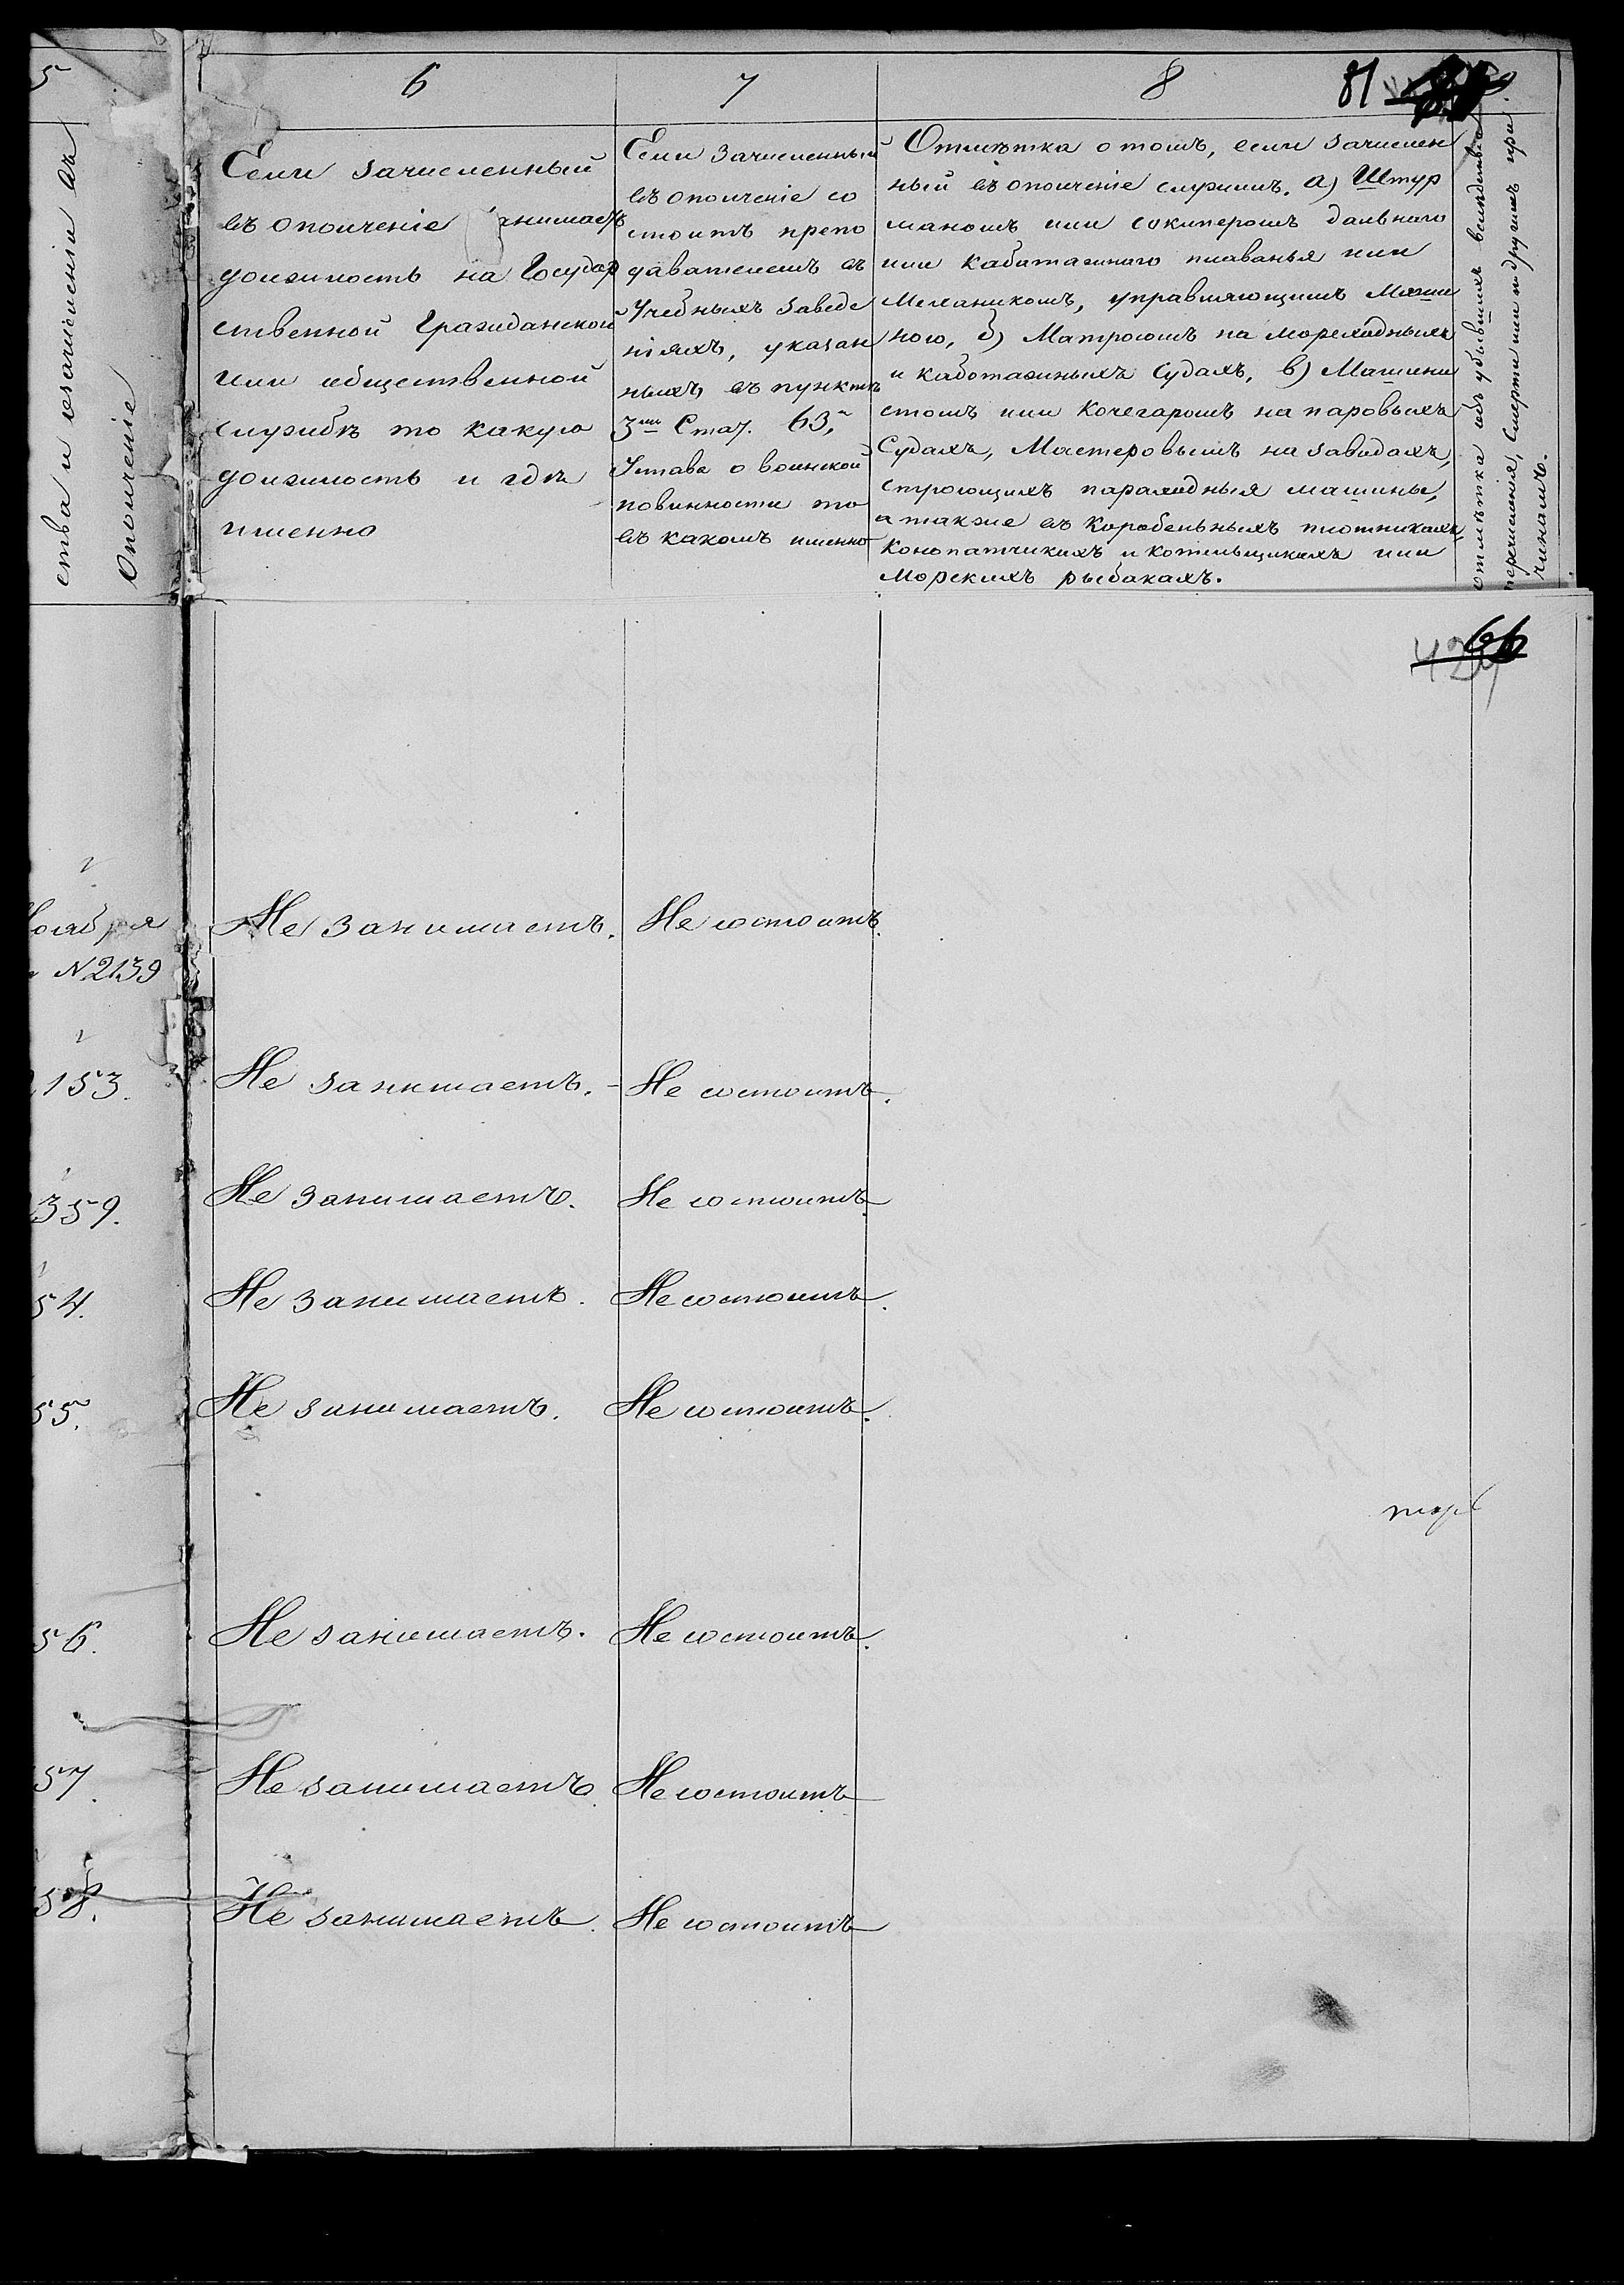 5
ства и о зачисленіи въ
Ополченіе
6
Если зачисленный
въ ополченіе занимаетъ
должность на Государ
ственной Гражданской
или общественной
службѣ то какую
должность и гдѣ
именно
7
Если зачисленный
въ ополченіе со
стоитъ препо
давателемъ въ
Учебныхъ заведе
ніяхъ, указан
ныхъ въ пунктѣ
3мъ Стат. 63,
Устава о воинской
повинности то
въ какомъ именно
8
81
Отмѣтка о томъ, если зачислен
ный въ ополченіе служитъ. а) Штур
маномъ или сокиперомъ дальнаго
или кабатажнаго плаванья или
Механикомъ, управляющимъ Маши
ною, б) Матросомъ на мореходныхъ
и каботажныхъ Судахъ, в) Машини
стомъ или Кочегаромъ на паровыхъ
Судахъ, Мастеровымъ на заводахъ,
строющихъ пароходныя машины,
а также въ Корабельныхъ плотникахъ,
Конопатчикахъ и котельщикахъ или
Морскихъ рыбакахъ.
отмѣтка объ убывшихъ вслѣдствіе
перечисленія, Смерти или по другимъ при
чинамъ.
66
Ноября
N 2139
Не занимаетъ. Не состоитъ.
153. Не занимаетъ. Не состоитъ.
359. Не занимаетъ. Не состоитъ.
54. Не занимаетъ. Не состоитъ.
55. Не занимаетъ. Не состоитъ.
56. Не занимаетъ. Не состоитъ.
57. Не занимаетъ. Не состоитъ
58. Не занимаетъ. Не состоитъ